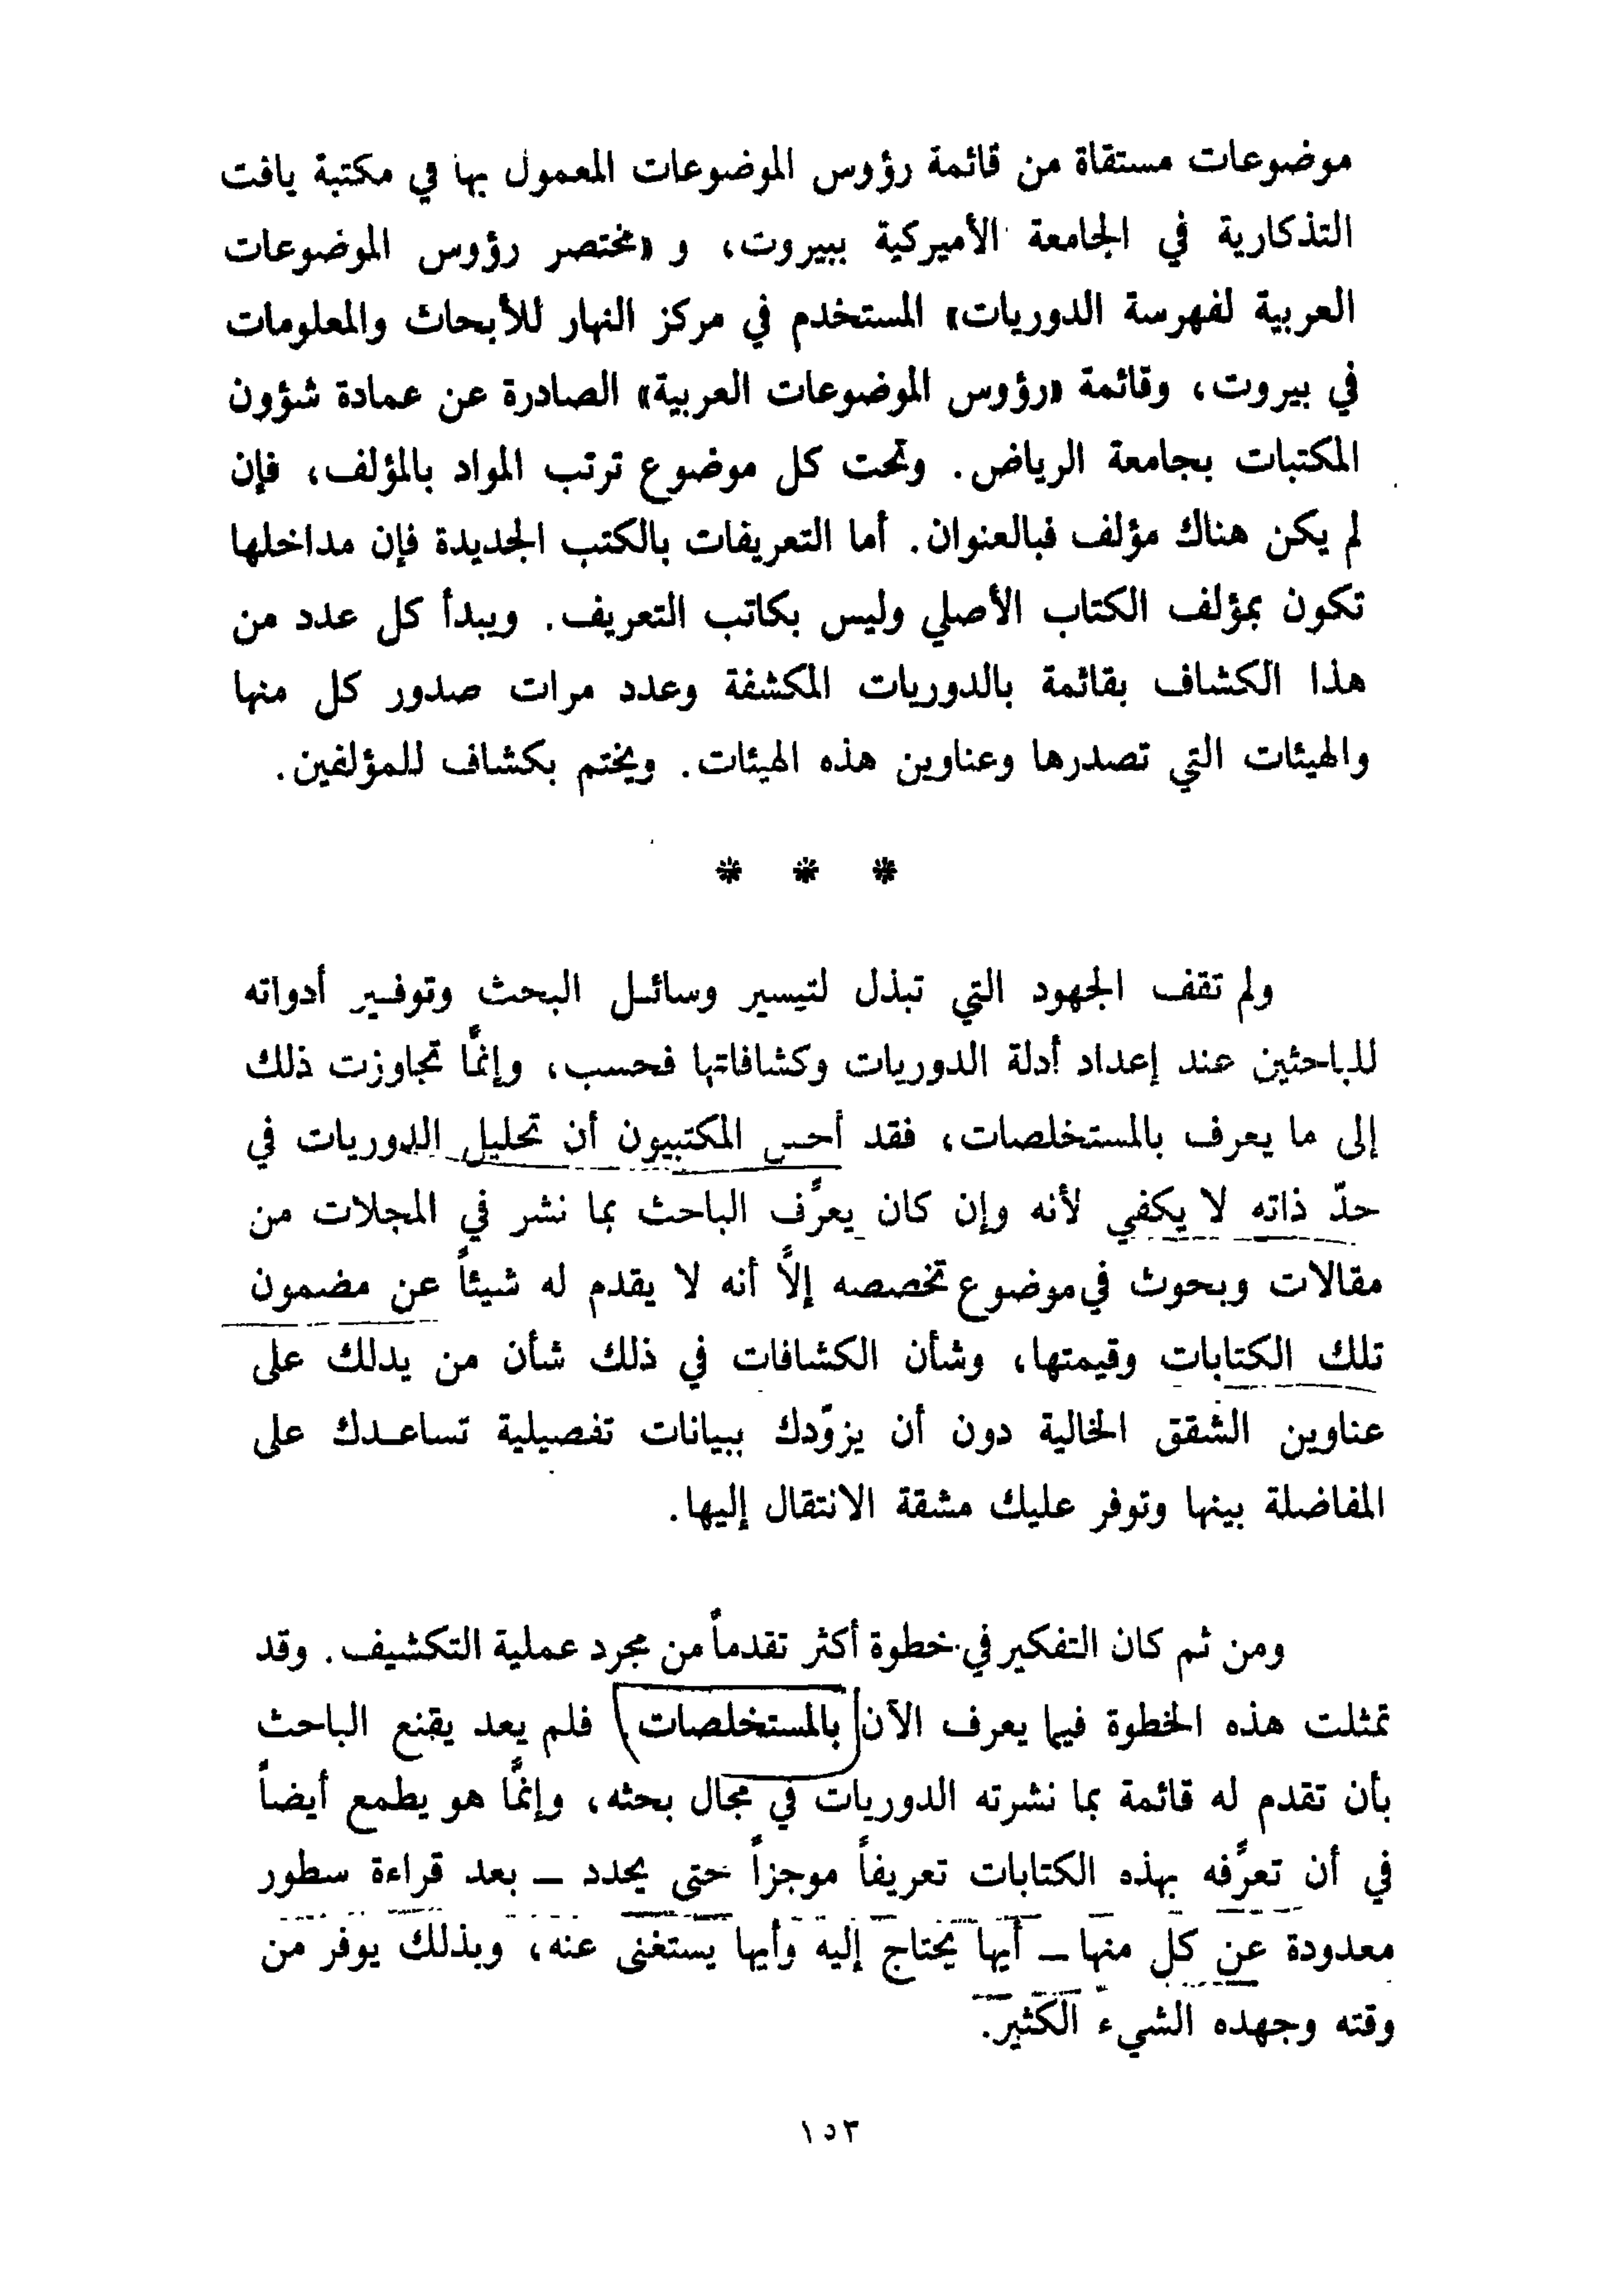 موضوعات مستقاة من قائمة رؤوس الموضوعات المعمول بها في مكتبة يافت
التذكارية في الجامعة الأميركية ببيروت، و «مختصر رؤوس الموضوعات
العربية لفهرسة الدوريات» المستخدم في مركز النهار للأبحاث والمعلومات
في بيروت، وقائمة «رؤوس الموضوعات العربية» الصادرة عن عمادة شؤون
المكتبات بجامعة الرياض. وتحت كل موضوع ترتب المواد بالمؤلف، فإن
لم يكن هناك مؤلف فبالعنوان. أما التعريفات بالكتب الجديدة فإن مداخلها
تكون بمؤلف الكتاب الأصلي وليس بكاتب التعريف. ويبدأ كل عدد من
هذا الكشاف بقائمة بالدوريات المكشفة وعدد مرات صدور كل منها
والهيئات التي تصدرها وعناوين هذه الهيئات. ويختم بكشاف للمؤلفين.
* * *
ولم تقف الجهود التي تبذل لتيسير وسائل البحث وتوفير أدواته
للباحثين عند إعداد أدلة الدوريات وكشافاتها فحسب، وإنمًا تجاوزت ذلك
إلى ما يعرف بالمستخلصات، فقد أحس المكتبيون أن تحليل الدوريات في
حدّ ذاته لا يكفي لأنه وإن كان يعرًف الباحث بما نشر في المجلات من
مقالات وبحوث في موضوع تخصصه إلاً أنه لا يقدم له شيئاً عن مضمون
تلك الكتابات وقيمتها، وشأن الكشافات في ذلك شأن من يدلك على
عناوين الشقق الخالية دون أن يزوّدك ببيانات تفصيلية تساعدك على
المفاضلة بينها وتوفر عليك مشقة الانتقال إليها.
ومن ثم كان التفكير في خطوة أكثر تقدماً من مجرد عملية التكشيف. وقد
تمثلت هذه الخطوة فيما يعرف الآن بالمستخلصات فلم يعد يقنع الباحث
بأن تقدم له قائمة بما نشرته الدوريات في مجال بحثه، وإنمًا هو يطمع أيضاً
في أن تعرًفه بهذه الكتابات تعريفاً موجزاً حتى يحدد — بعد قراءة سطور
معدودة عن كل منها — أيها يحتاج إليه وأيها يستغنى عنه، وبذلك يوفر من
وقته وجهده الشيء الكثير.
١٥٣